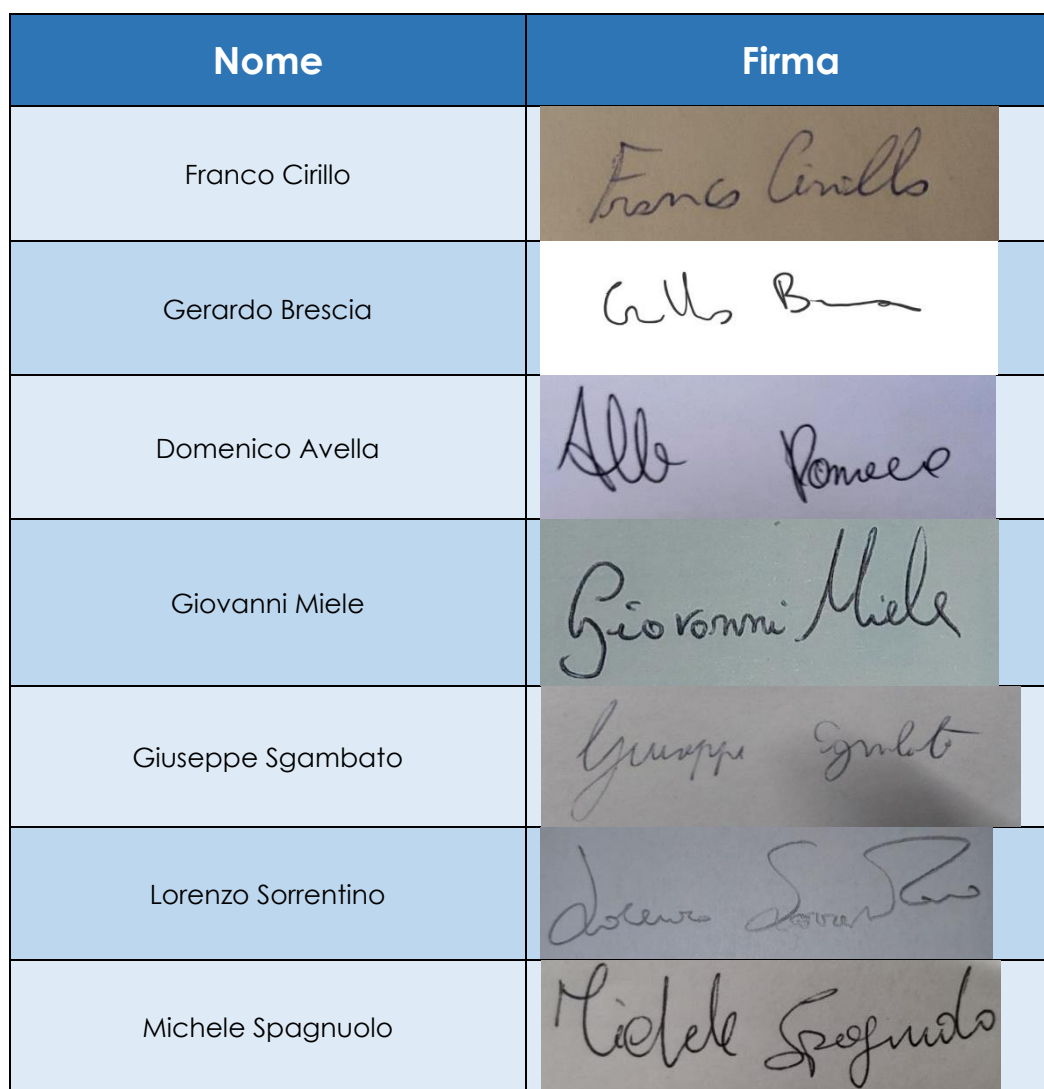 Nome Firma
Franco Cirillo Franco Cirillo
Gerardo Brescia
Domenico Avella
Giovanni Miele Giovanni Miele
Giuseppe Sgambato Giuseppe
Lorenzo Sorrentino Lorenzo
Michele Spagnuolo Michele Spagnuolo